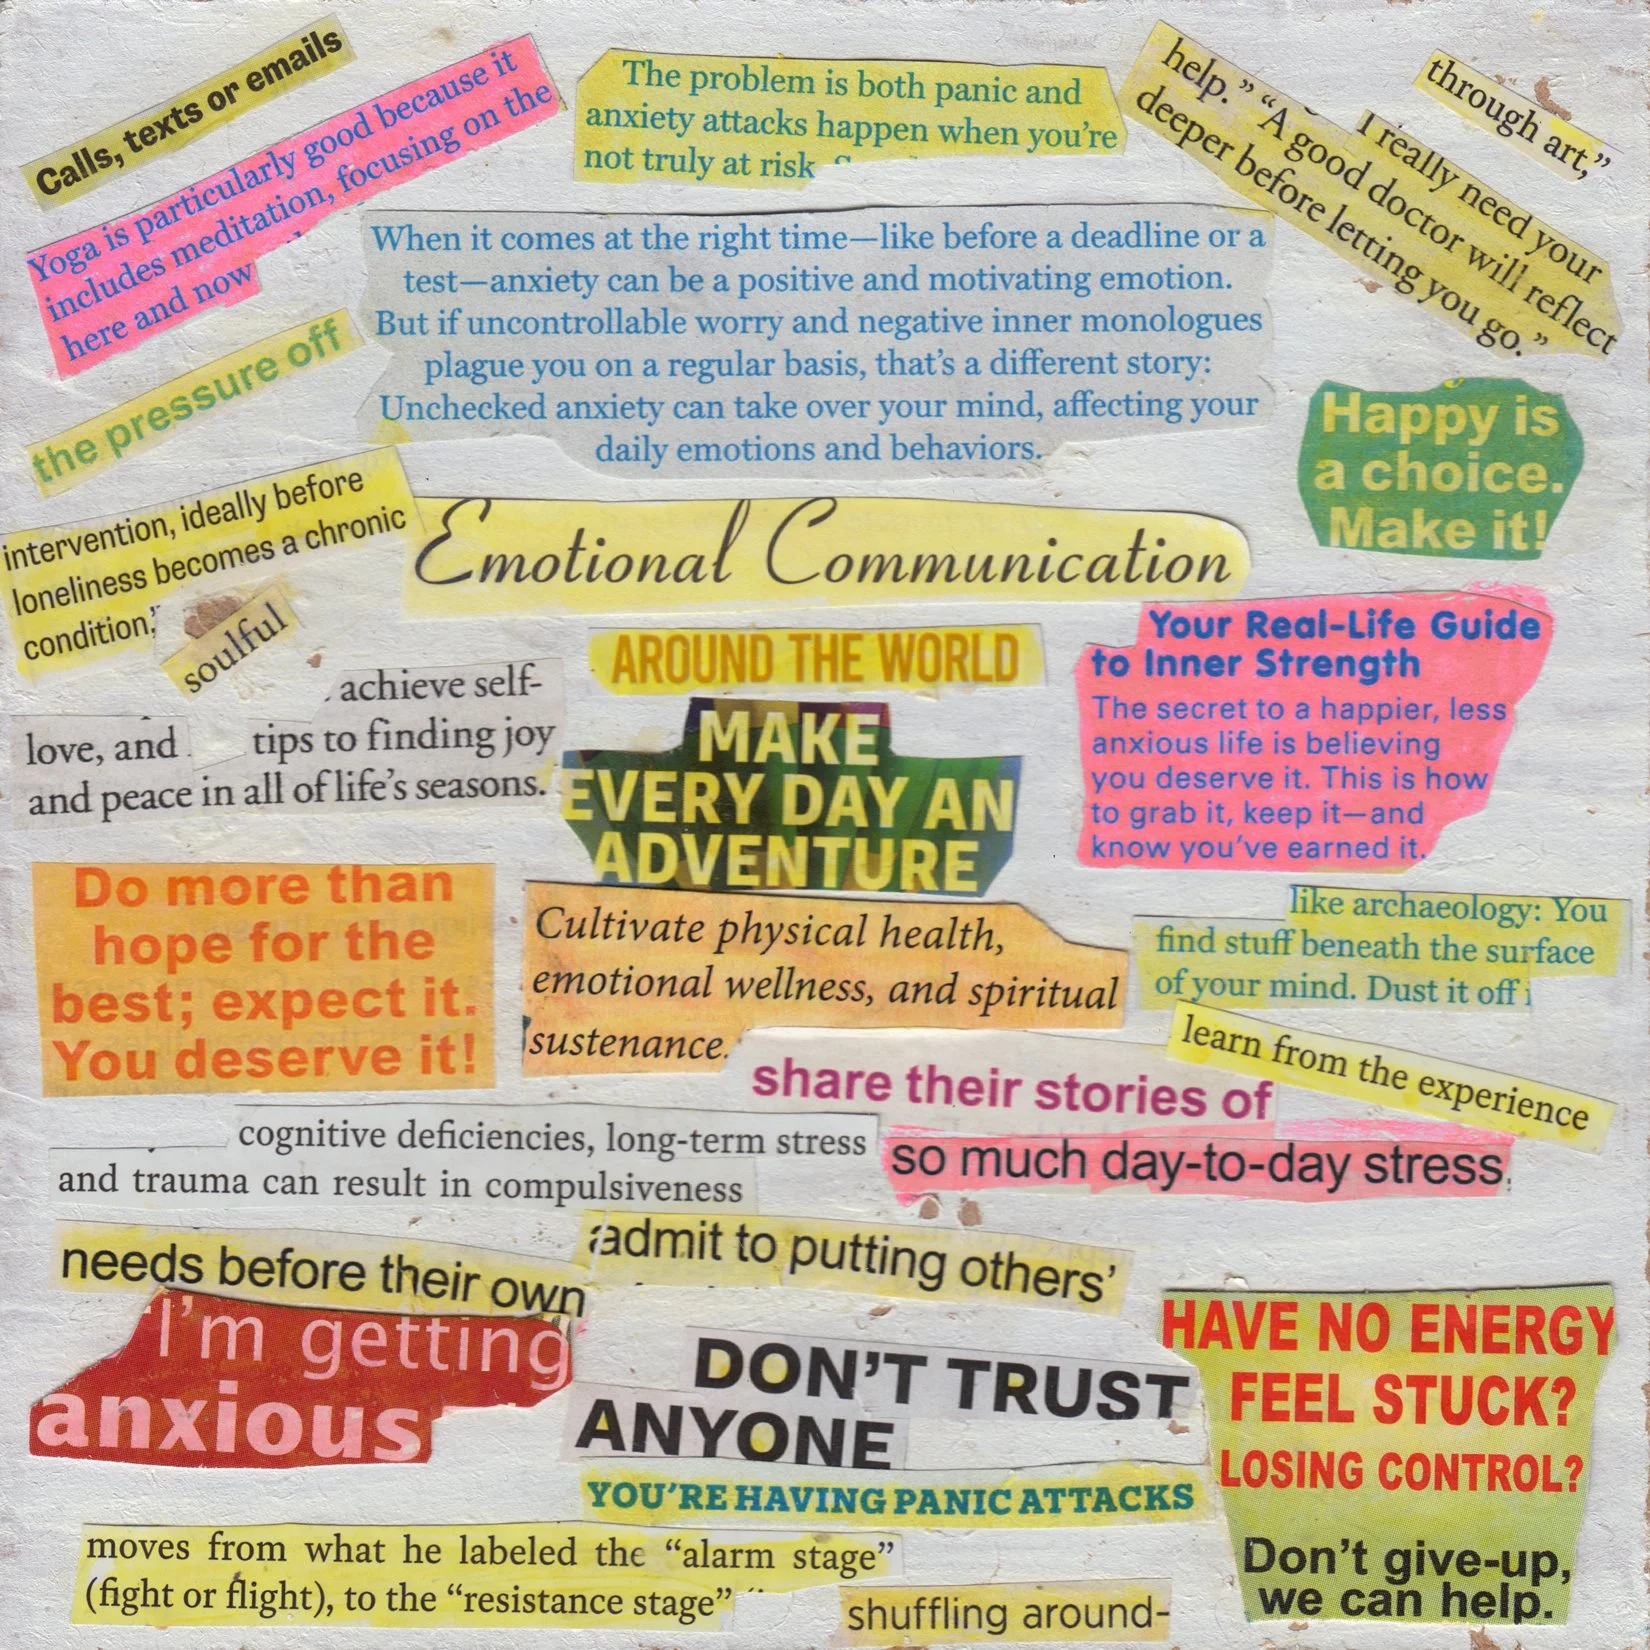 Calls, texts or emails
Yoga is particularly good because it
includes meditation, focusing on the
here and now
The problem is both panic and
anxiety attacks happen when you're
not truly at risk
help." "A good doctor will reflect
deeper before letting you go."
I really need your
through art,"
the pressure off
When it comes at the right time—like before a deadline or a
test—anxiety can be a positive and motivating emotion.
But if uncontrollable worry and negative inner monologues
plague you on a regular basis, that's a different story:
Unchecked anxiety can take over your mind, affecting your
daily emotions and behaviors.
Happy is
a choice.
Make it!
intervention, ideally before
loneliness becomes a chronic
condition,"
Emotional Communication
soulful
achieve self-
love, and tips to finding joy
and peace in all of life's seasons.
AROUND THE WORLD
MAKE
EVERY DAY AN
ADVENTURE
Your Real-Life Guide
to Inner Strength
The secret to a happier, less
anxious life is believing
you deserve it. This is how
to grab it, keep it—and
know you've earned it.
Do more than
hope for the
best; expect it.
You deserve it!
Cultivate physical health,
emotional wellness, and spiritual
sustenance.
like archaeology: You
find stuff beneath the surface
of your mind. Dust it off
learn from the experience
share their stories of
cognitive deficiencies, long-term stress
and trauma can result in compulsiveness
so much day-to-day stress.
admit to putting others'
needs before their own
I'm getting
anxious
DON'T TRUST
ANYONE
YOU'RE HAVING PANIC ATTACKS
HAVE NO ENERGY
FEEL STUCK?
LOSING CONTROL?
Don't give-up,
we can help.
moves from what he labeled the "alarm stage"
(fight or flight), to the "resistance stage"
shuffling around-